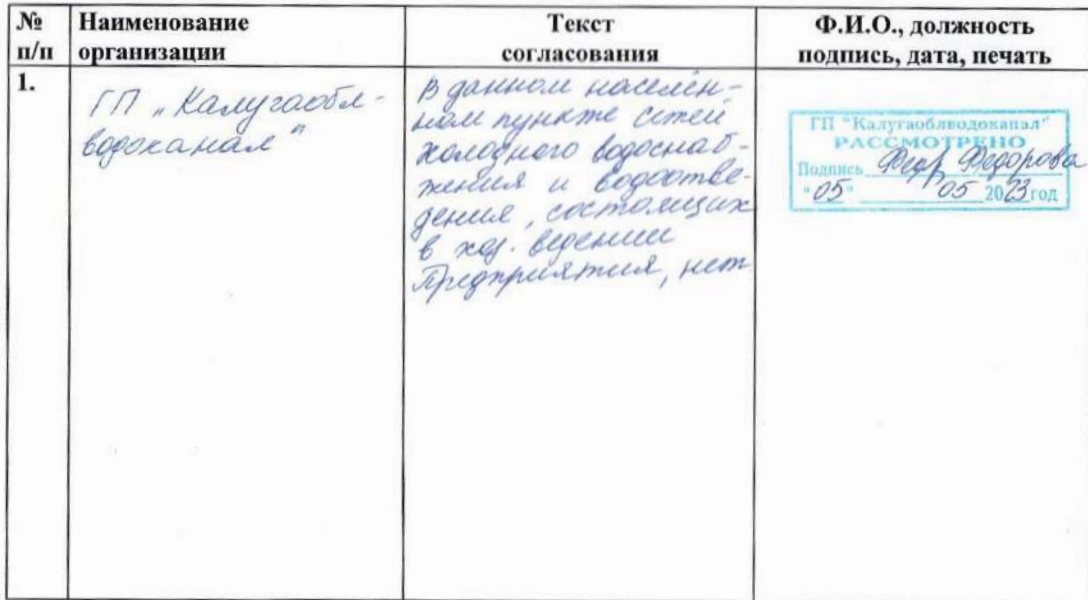 № п/п
Наименование организации
Текст согласования
Ф.И.О., должность подпись, дата, печать
1.
ГП „Калугаобл-
водоканал"
В данном населён-
ном пункте сетей
холодного водоснаб-
жения и водоотве-
дения, состоящих
в хоз. ведении
Предприятия, нет
ГП "Калугаоблводоканал"
РАССМОТРЕНО
Подпись Федорова
"05" 05 2023 год